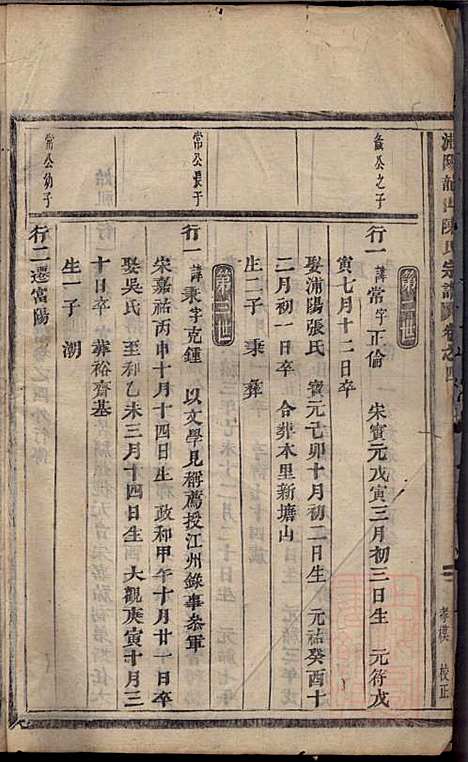 浦陽龍山陳氏宗譜卷之四
孝模 校正
第二世
彝公之子
行一 諱常字正倫 宋寶元戊寅三月初三日生 元符戊
寅七月十二日卒
娶浦陽張氏 寶元己卯十月初二日生 元祐癸酉十
二月初一日卒 合葬木里新塘山
生二子 秉 彝
第三世
常公長子
行一 諱秉字克鍾 以文學見稱薦授江州錄事叅軍
宋嘉祐丙申十月十四日生 政和甲午十月廿一日卒
娶吳氏 至和乙未三月十四日生 大觀庚寅十月三
十日卒 葬裕齋基
生一子 潮
常公幼子
行二遷富陽